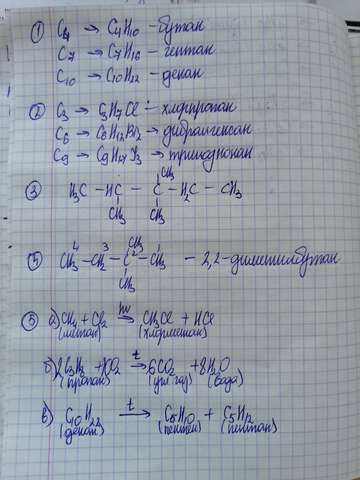 ① C₄ → C₄H₁₀ – бутан
C₇ → C₇H₁₆ – гептан
C₁₀ → C₁₀H₂₂ – декан
② C₃ → C₃H₇Cl – хлорпропан
C₆ → C₆H₁₂Br₂ → дибромгексан
C₉ → C₉H₁₇I₃ → трииоднонан
CH₃
③ H₃C – HC – C – H₂C – CH₃
CH₃ CH₃
CH₃
CH₃ – CH₂ – C – CH₃ – 2,2-диметилбутан
4 3 2 1
CH₃
⑤ а) CH₄ + Cl₂ hν → CH₃Cl + HCl
(метан) (хлорметан)
б) C₃H₈ + O₂ t → 6CO₂ + 8H₂O
(пропан) (угл. газ) (вода)
в) C₁₀H₂₂ t → C₅H₁₀ + C₅H₁₂
(декан) (пентен) (пентан)